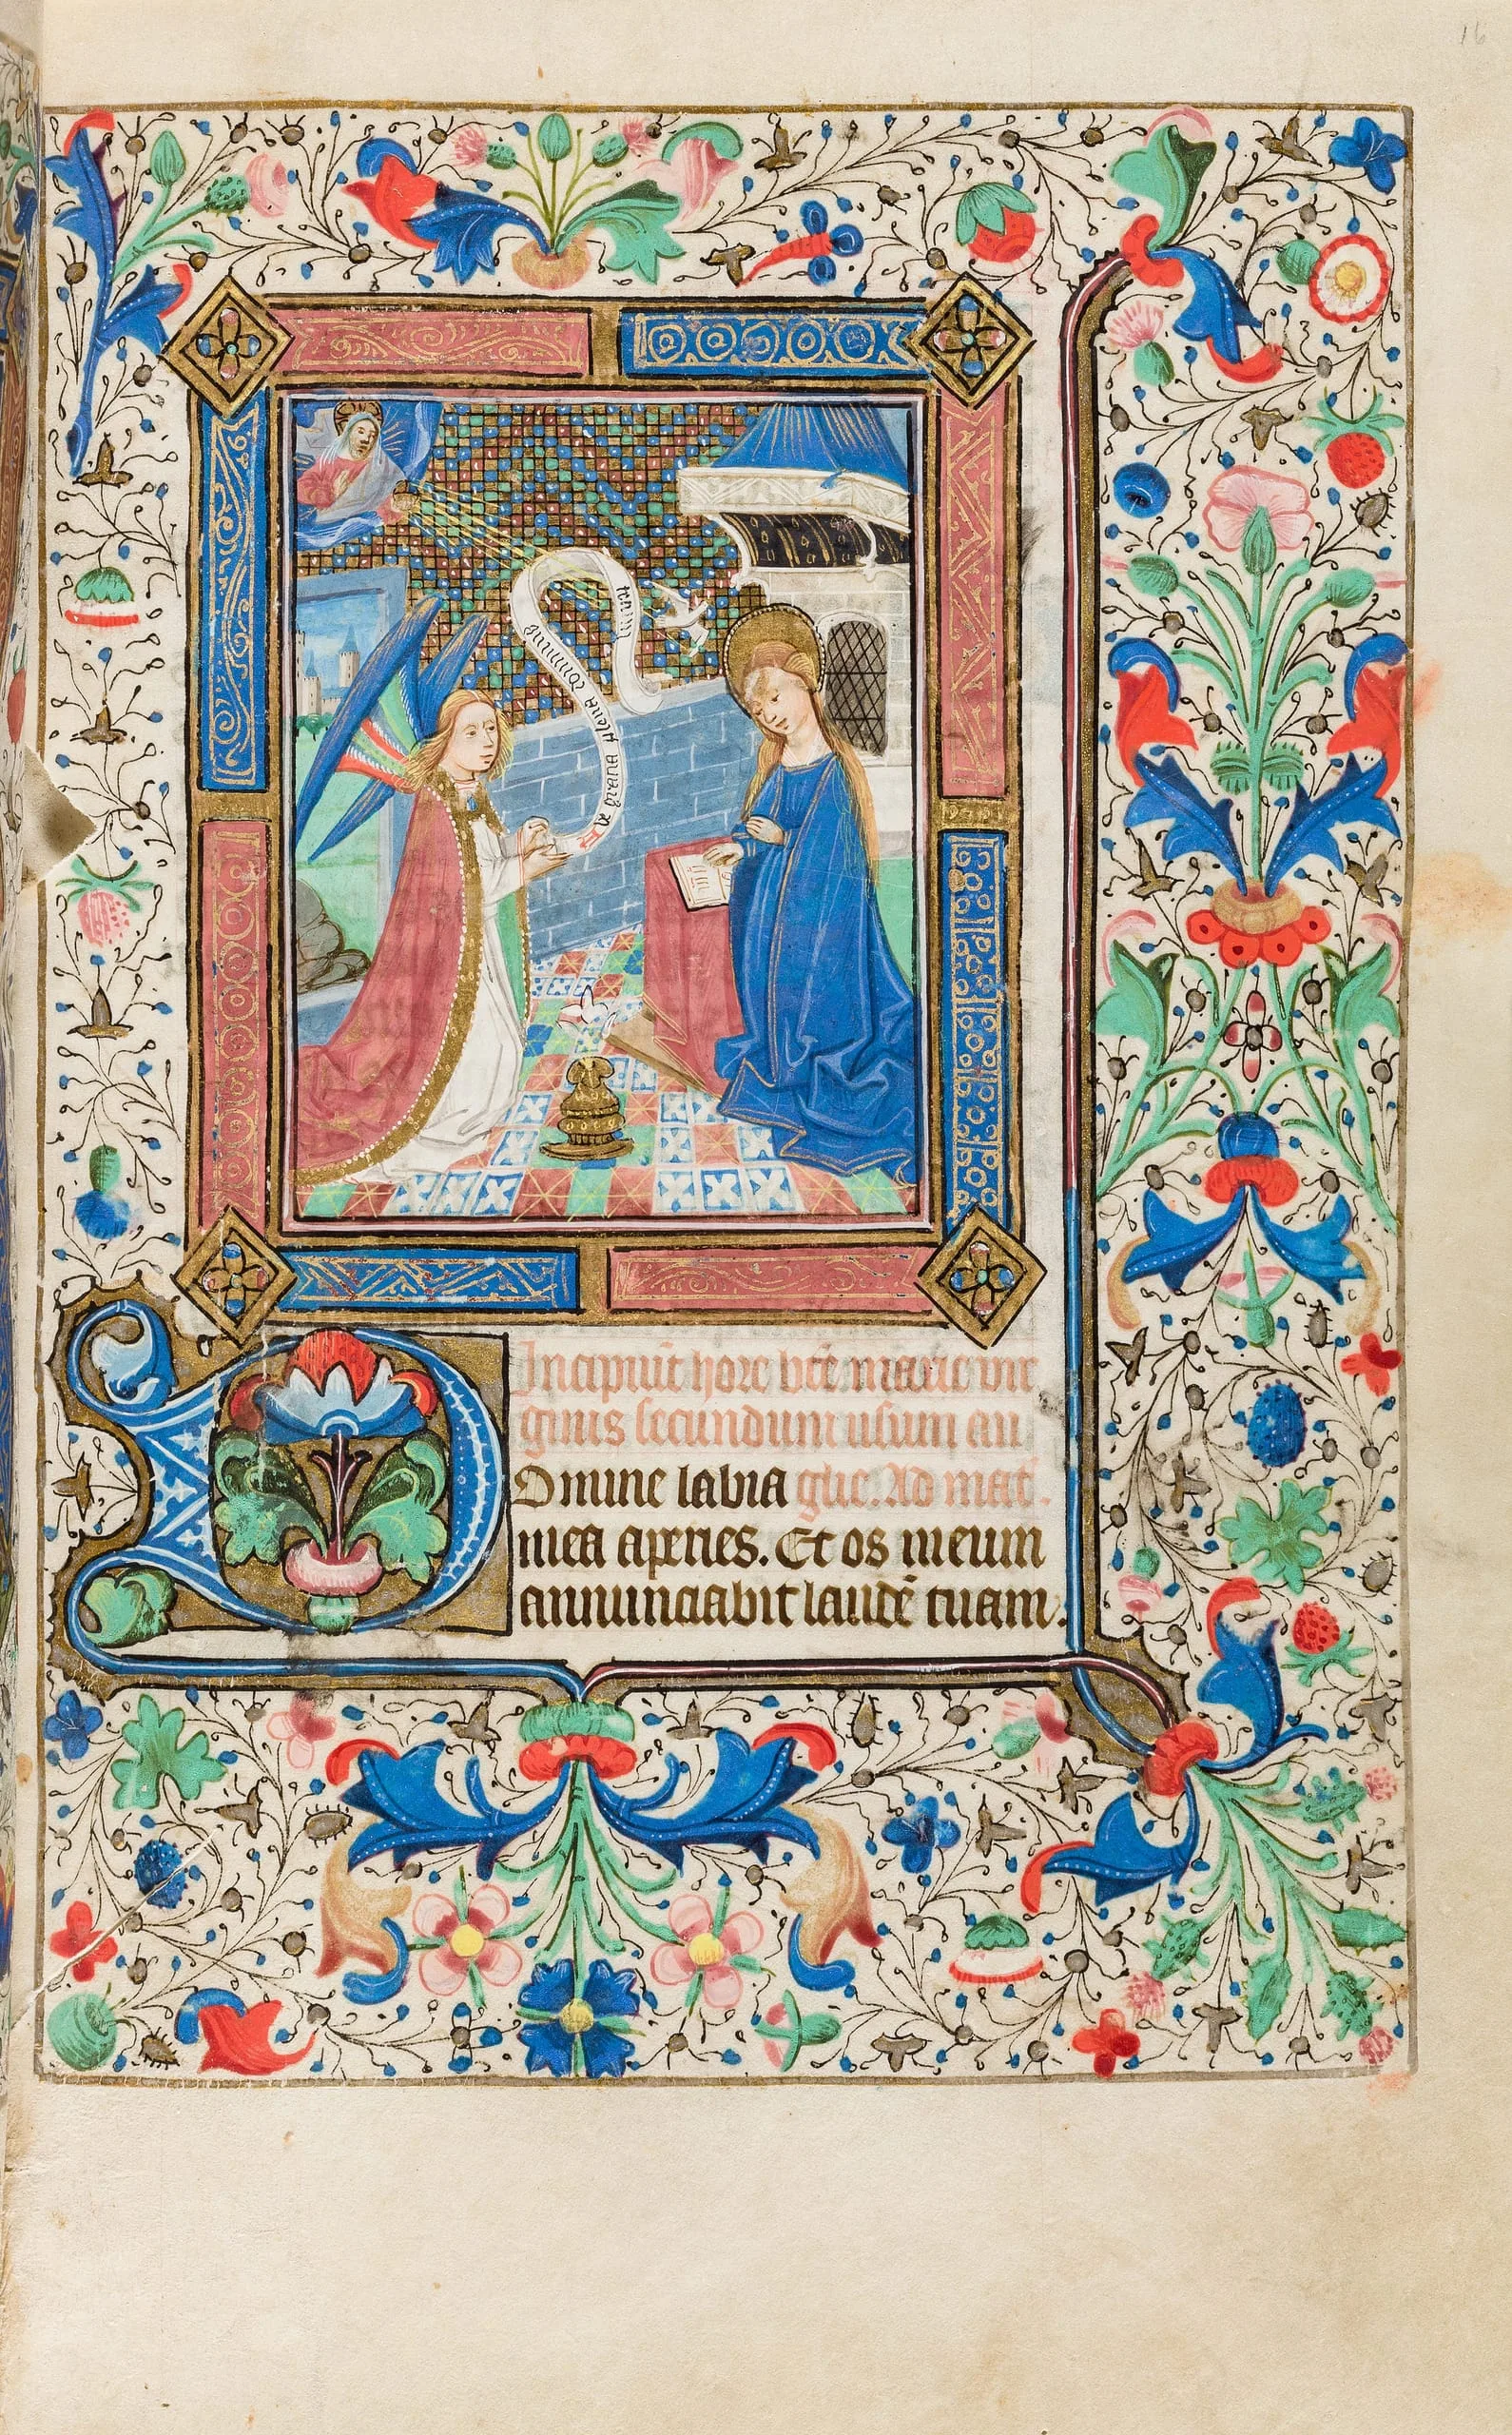 16
Ave gracia plena dominus tecum
Incipiūt hore bt̄e marie vir
ginis secundum usum an
Domine labia glie. Ad mat̄.
mea aperies. Et os meum
annunciabit laudē tuam.